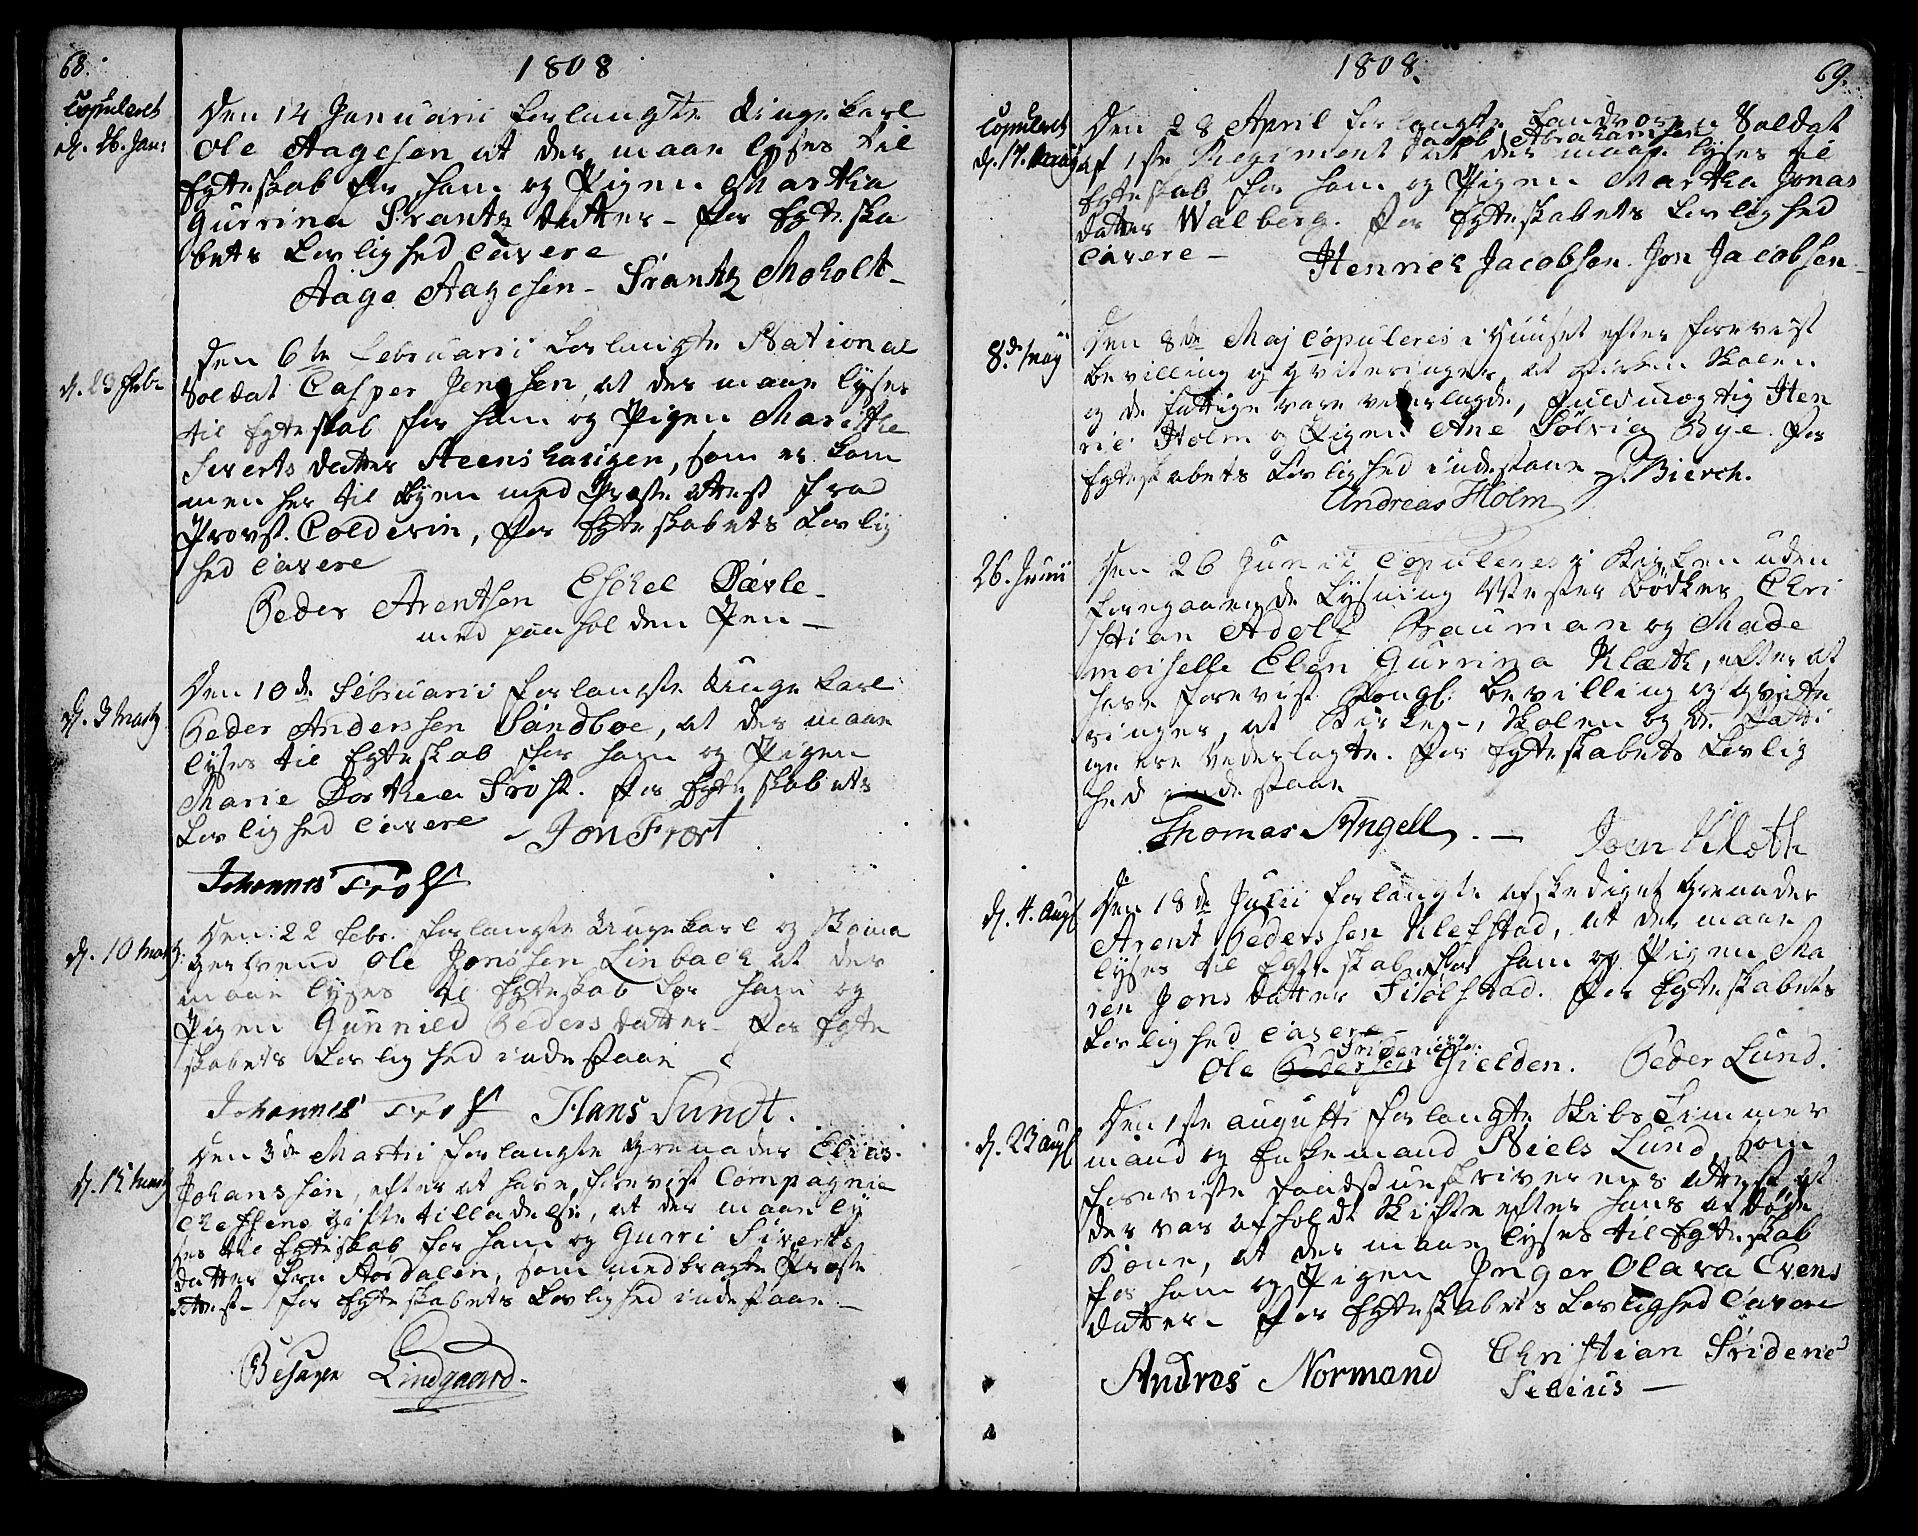 68.
1808
Copuleret
d. 26. Jan:
Den 14 Januarii forlangte Ungekarl
Ole Aagesen at der maae lyses til
Egteskab for ham og Pigen Martha
Gurrina Frantz datter - for Egteska
bets Lovlighed cavere
Aage Aagesen - Frantz Moholt -
d. 23 Febr
Den 6te Februarii forlangte National
Soldat Casper Jenssen, at der maae lyses
til Egteskab for ham og Pigen Marithe
Siverts datter Steenshaugen, som er kom
men her til Byen med Præste Attest fra
Provst Colderin, for Egteskabets Lovlig
hed cavere
Peder Arentsen Eschel Dævle -
med paaholden Pen -
d. 3 Martz
Den 10de Februarii forlangte Ungekarl
Peder Anderssen Sandboe, at der maae
lyses til Egteskab for ham og Pigen
Marie Dorthea Frost. for Egteskabets
Lovlighed cavere - Jon Frost
Johannes Frost
d. 10 Martz
Den 22 Febr. forlangte Ungekarl og Skoma
gersvend Ole Jonssen Linbach at der
maae lyses til Egteskab for ham og
Pigen Gunnild Peders datter - for Egte
skabets Lovlighed indestaae
Johannes Frost Hans Sundt.
Den 3de Martii forlangte Grenader Elias
Johanssen, efter at have forevist Compagnie
Cheffens giftetilladelse, at der maae ly
ses til Egteskab for ham og Gurri Siverts
datter fra Aordalen, som medbragte Præste
Attest - for Egteskabets Lovlighed indestaae -
Lindgaard.
1808.
69.
Copuleret
d. 17. Maij
Den 28 April forlangte Landvorn Soldat
Jacob Abrahamsen
af 1ste Regiment at der maae lyses til
Egteskab for ham og Pigen Martha Jonas
datter Walberg. for Egteskabets Lovlighed
cavere - Henrich Jacobsen. Jon Jacobsen -
8de Maij
Den 8de Maj copuleres i Huuset efter forevist
bevilling og qviteringer, at Kirken Skolen
og de fattige vare vederlagde, Fuldmægtig Hen
ric Holm og Pigen Ane Sølvia Bye. for
Egteskabets Lovlighed indestaae J. Bierch.
Andreas Holm
26. Junii
Den 26 Junii copuleres i Kirken uden
foregaaende Lysning Mester Bødker Chri
stian Adolf Brauman og Made
moiselle Elen Gurrina Klæth, efter at
have forevist Kongl: bevilling og qvite
ringer, at Kirken, Skolen og de Fatti
ge ere vederlagte. for Egteskabets Lovlig
hed indestaae
Thomas Angell. - Joen Klæth
d. 4. Aug
Den 18de Julii forlangte afskediget Grenader
Arent Pederssen Klefstad, at der maae
lyses til Egteskab for ham og Pigen Ma
ren Jons datter Fiølstad. for Egteskabets
Lovlighed cavere -
Ole Pedersen Gielden. Peder Lund.
d. 23 Aug
Den 1ste Augusti forlangte Skibs Timmer
mand og Enkemand Niels Lund, som
foreviste Raadstueskriverens Attest at
der var afholdt Skifte efter hans afdøde
Kone, at der maae lyses til Egteskab
for ham og Pigen Inger Olava Evens
datter - for Egteskabets Lovlighed cavere
Andres Normand Christian Frideric
Selius -